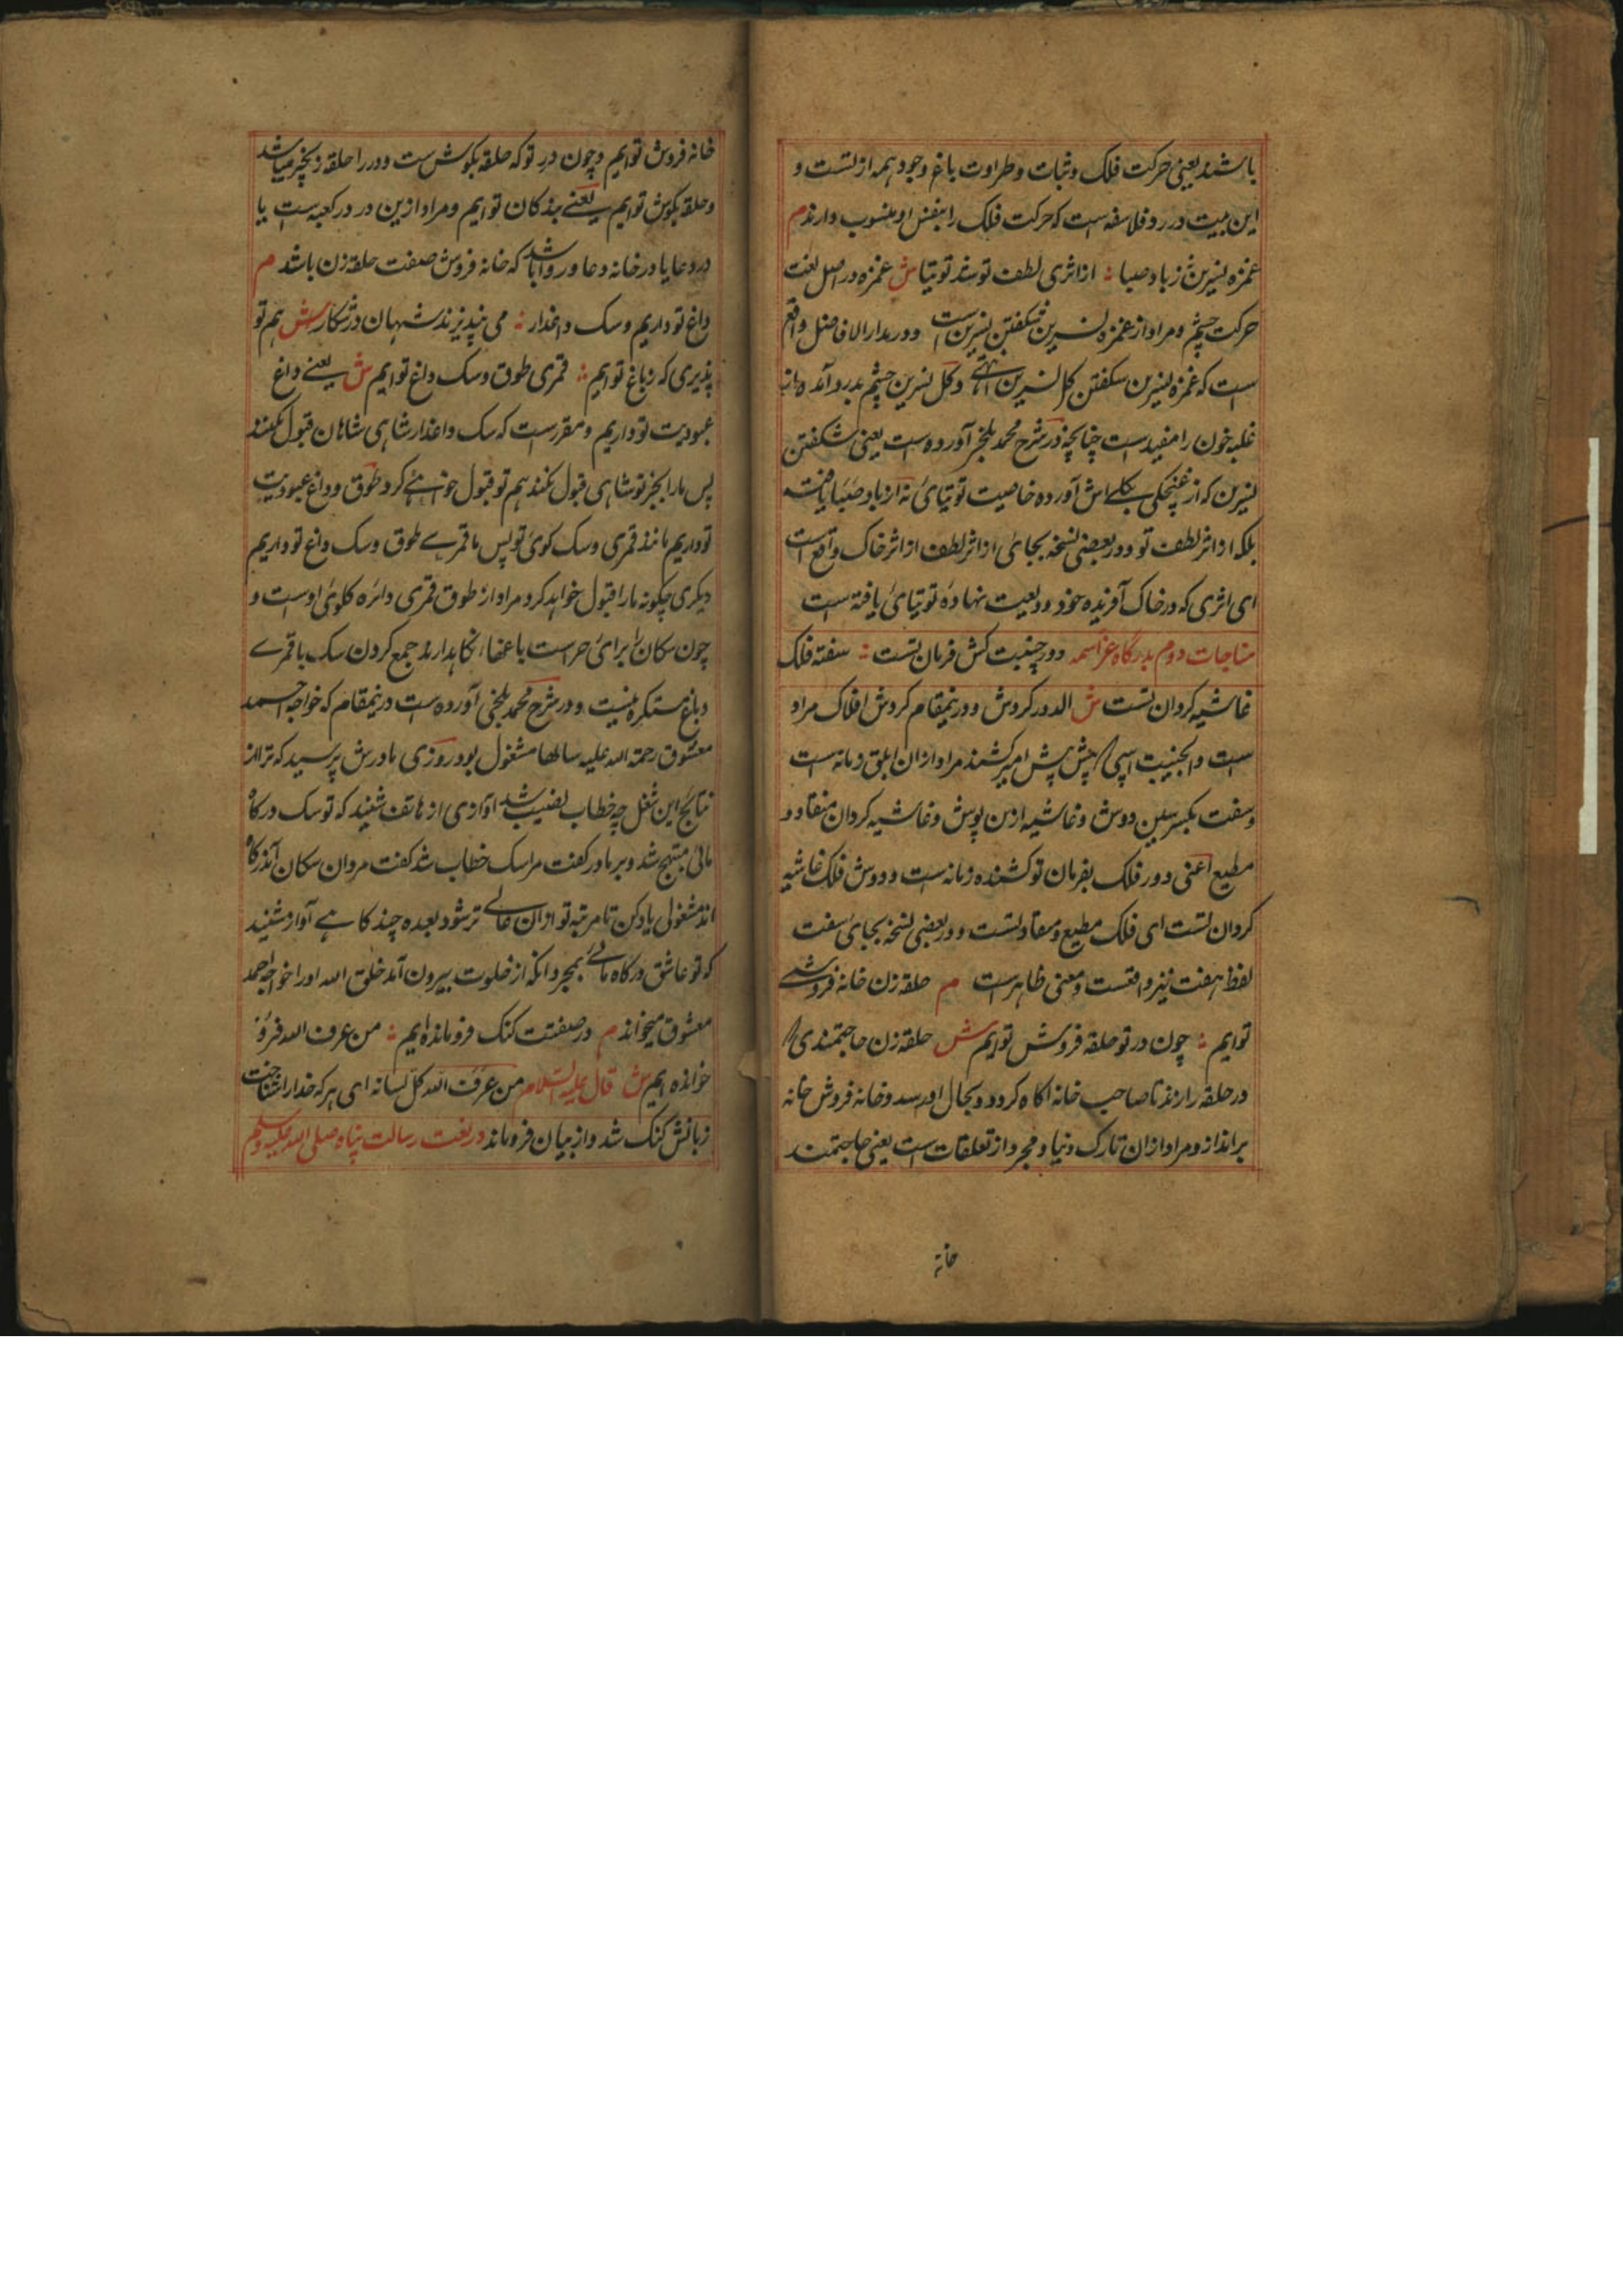 باشند یعنی حرکت فلک و ثبات و طراوت باغ وجود همه از تست و
این بیت در رد فلاسفه است که حرکت فلک را بنفس او منسوب دارند م
غمزه نسرین ز باد صبا ؛ از اثری لطف تو شد توتیا ش غمزه در اصل لغت
حرکت چشم و مراد از غمزه نسرین شکفتن نسرین است و در مدار الافاضل واقع
است که غمزه نسرین شکفتن گل نسرین انتهی و گل نسرین چشم بدرد آمده و از
غلبه خون را مفید است چنانچه در شرح محمد بلخی آورده است یعنی شکفتن
نسرین که از غنچگی بگلی اش آورده خاصیت توتیائی نه از باد صبا یافته
بلکه از اثر لطف تو و در بعضی نسخه بجائی از اثر لطف از اثر خاک واقع است
ای اثری که در خاک آفریده خود ودیعت نهاده توتیائی یافته است
مناجات دوم بدرگاه عز اسمه دور جنیبت کش فرمان تست ؛ سفته فلک
غاشیه گردان تست ش الدور گردش و درینمقام گردش افلاک مراد
است و الجنیبت اسپی که پیش پیش امیر کشند مراد ازان ابلق زمانه است
و سفت بکسر سین دوش و غاشیه ازین پوش و غاشیه گردان منقاد و
مطیع اعنی دور فلک بفرمان تو کشنده زمانه است و دوش فلک غاشیه
گردان تست ای فلک مطیع و منقاد تست و در بعضی نسخه بجای سفت
لفظ هفت نیز واقعست و معنی ظاهر است م حلقه زن خانه فروش
توایم ؛ چون در تو حلقه فروش توایم ش حلقه زن حاجتمندی که
در حلقه را زند تا صاحب خانه آگاه گردد و بحال او رسد و خانه فروش خانه
برانداز و مراد ازان تارک دنیا و مجرد از تعلقات است یعنی حاجتمند
خانه
خانه فروش توایم و چون در تو که حلقه بگوش ست و در را حلقه زنجیر میباشد
و حلقه بگوش توایم یعنی بندگان توایم و مراد ازین در در کعبه است یا
در دعا یا در خانه دعا و روا باشد که خانه فروش صفت حلقه زن باشد م
داغ تو داریم و سگ داغدار ؛ می نپذیرند شهان در شکار ش هم تو
پذیری که ز باغ توایم ؛ قمری طوق و سگ داغ توایم ش یعنی داغ
عبودیت تو داریم و مقرر است که سگ داغدار شاهی شاهان قبول نکنند
پس ما را بجز تو شاهی قبول نکند هم تو قبول خواهی کرد طوق و داغ عبودیت
تو داریم مانند قمری و سگ کوی تو پس ما قمری طوق و سگ داغ تو داریم
دیگری چگونه ما را قبول خواهد کرد مراد از طوق قمری دائره گلوی اوست و
چون سگان را برای حراست باغها نگاهدارند جمع کردن سگ با قمری
و باغ مستکره نیست و در شرح محمد بلخی آورده است درینمقام که خواجه احمد
معشوق رحمة الله علیه سالها مشغول بود روزی مادرش پرسید که ترا از
نتایج این شغل چه خطاب نصیب شد آوازی از هاتف شنید که تو سگ درگاه
مائی مبتهج شد و بر مادر گفت مرا سگ خطاب شد گفت مردان سگان آندرگاه
اند مشغول یاد کن تا مرتبه تو ازان عالی تر شود بعده چند گاهی آواز شنید
که تو عاشق درگاه مائی بمجرد آنکه از خلوت بیرون آمد خلق الله او را خواجه احمد
معشوق میخواند م در صفتت گنگ فرو مانده ایم ؛ من عرف الله فرو
خوانده ایم ش قال علیه السلام من عرف الله کل لسانه ای هر که خدا را شناخت
زبانش گنگ شد و از بیان فرو ماند در نعت رسالت پناه صلی الله علیه وسلم